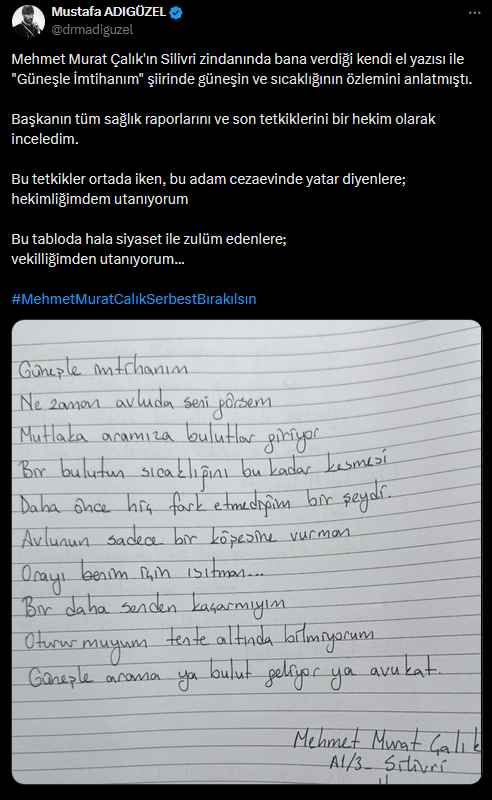 Mustafa ADIGÜZEL
@drmadiguzel
Mehmet Murat Çalık'ın Silivri zindanında bana verdiği kendi el yazısı ile
"Güneşle İmtihanım" şiirinde güneşin ve sıcaklığının özlemini anlatmıştı.
Başkanın tüm sağlık raporlarını ve son tetkiklerini bir hekim olarak
inceledim.
Bu tetkikler ortada iken, bu adam cezaevinde yatar diyenlere;
hekimliğimdem utanıyorum
Bu tabloda hala siyaset ile zulüm edenlere;
vekilliğimden utanıyorum...
#MehmetMuratCalıkSerbestBırakılsın
Güneşle imtihanım
Ne zaman avluda seni görsem
Mutlaka aramıza bulutlar giriyor
Bir bulutun sıcaklığını bu kadar kesmesi
Daha önce hiç fark etmediğim bir şeydi.
Avlunun sadece bir köşesine vurman
Orayı benim için ısıtman...
Bir daha senden kaçarmıyım
Oturur muyum tente altında bilmiyorum
Güneşle arama ya bulut geliyor ya avukat.
Mehmet Murat Çalık
A1/3_ Silivri